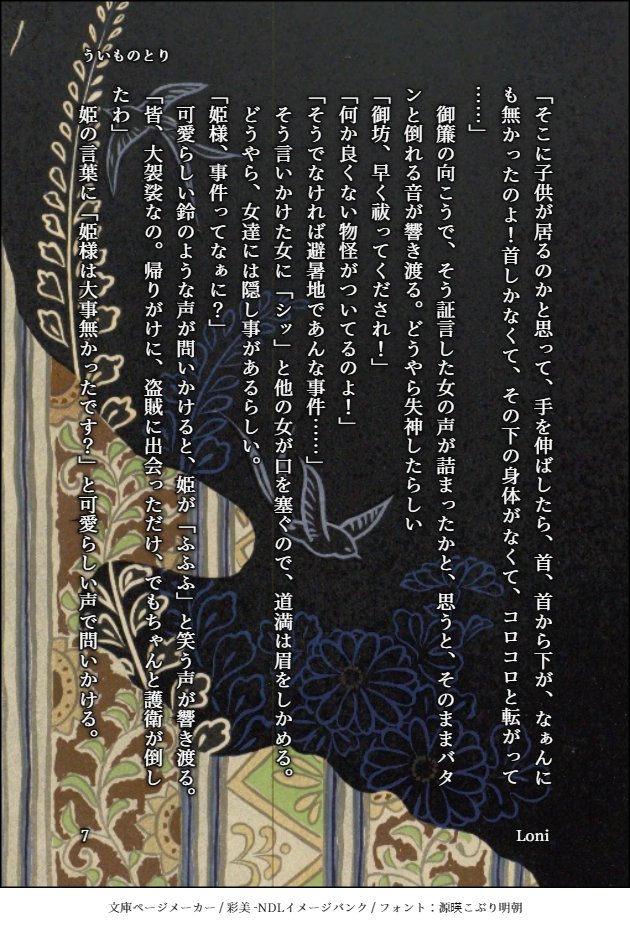 ういものとり
「そこに子供が居るのかと思って、手を伸ばしたら、首、首から下が、なぁんに
も無かったのよ！首しかなくて、その下の身体がなくて、コロコロと転がって
……」
　御簾の向こうで、そう証言した女の声が詰まったかと、思うと、そのままバタ
ンと倒れる音が響き渡る。どうやら失神したらしい
「御坊、早く祓ってくだされ！」
「何か良くない物怪がついてるのよ！」
「そうでなければ避暑地であんな事件……」
　そう言いかけた女に「シッ」と他の女が口を塞ぐので、道満は眉をしかめる。
　どうやら、女達には隠し事があるらしい。
「姫様、事件ってなぁに？」
　可愛らしい鈴のような声が問いかけると、姫が「ふふふ」と笑う声が響き渡る。
「皆、大袈裟なの。帰りがけに、盗賊に出会っただけ、でもちゃんと護衛が倒し
たわ」
　姫の言葉に「姫様は大事無かったです？」と可愛らしい声で問いかける。
7
Loni
文庫ページメーカー / 彩美 -NDLイメージバンク / フォント：源暎こぶり明朝